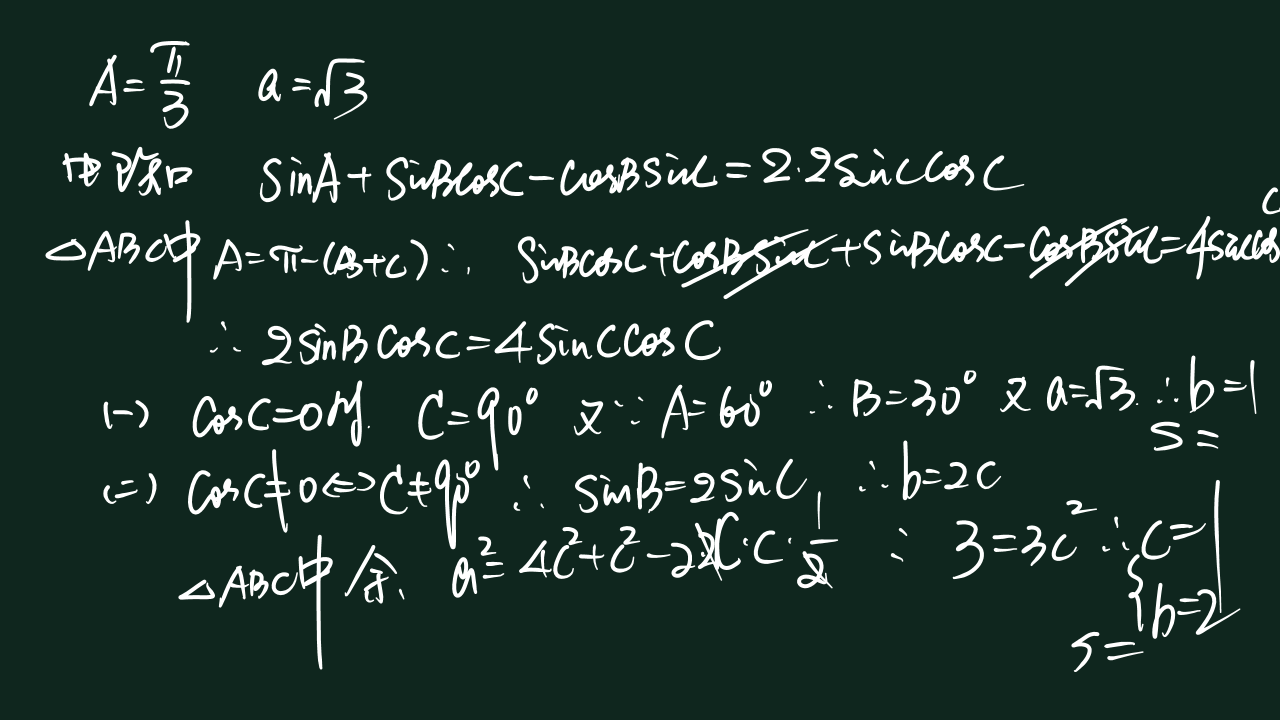 A=π/3 a=√3
由已知 sinA+sinBcosC-cosBsinC=2·2sinCcosC
△ABC中 A=π-(B+C)∴ sinBcosC+cosBsinC+sinBcosC-cosBsinC=4sinCcosC
∴ 2sinBcosC=4sinCcosC
(一) cosC=0时. C=90° 又∵A=60° ∴B=30° 又a=√3.∴b=1
S=
(二) cosC≠0⇔C≠90° ∴ sinB=2sinC ∴b=2c
△ABC中 余. a²=4c²+c²-2·2c·c·1/2 ∴ 3=3c² ∴c=1
b=2
S=